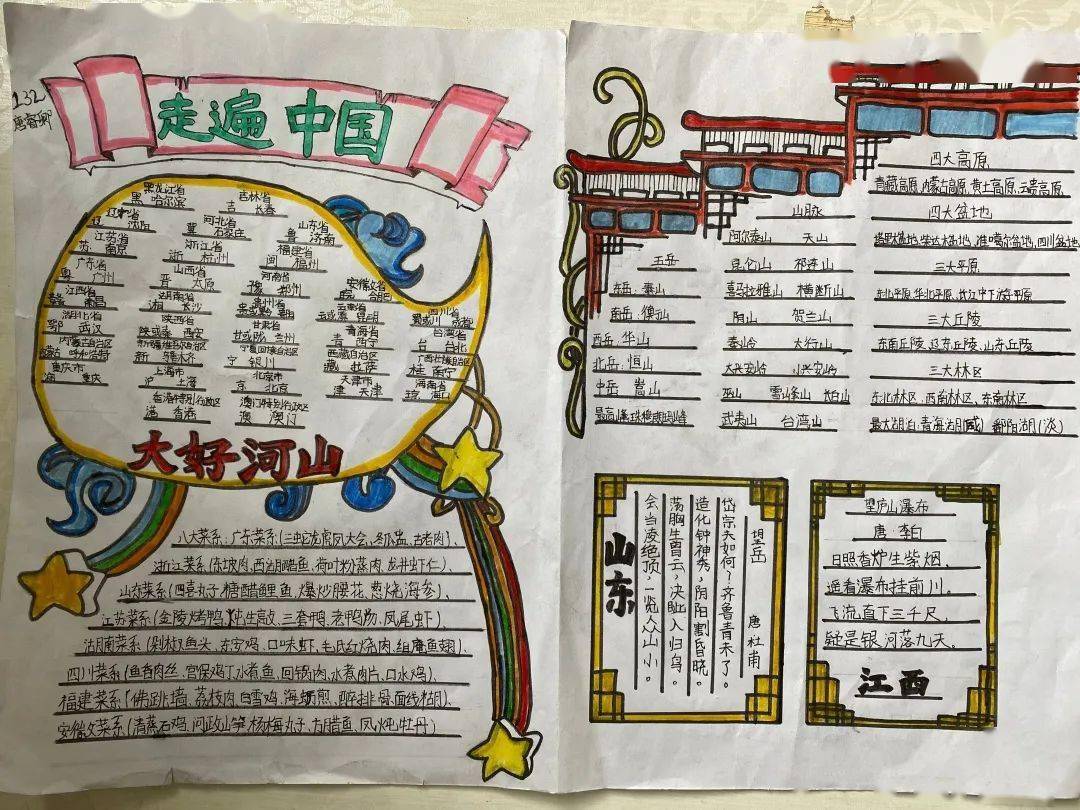 132
走遍中国
黑龙江省 吉林省
黑 哈尔滨 吉 长春
辽宁省 河北省 山东省
辽 沈阳 冀 石家庄 鲁 济南
江苏省 浙江省 福建省
苏 南京 浙 杭州 闽 福州
广东省 山西省 河南省 安徽省
粤 广州 晋 太原 豫 郑州 皖 合肥
江西省 湖南省 贵州省 云南省 四川省
赣 南昌 湘 长沙 贵或黔 贵阳 云或滇 昆明 蜀或川 成都
湖北省 陕西省 甘肃省 青海省 台湾省
鄂 武汉 陕或秦 西安 甘或陇 兰州 青 西宁 台 台北
内蒙古自治区 新疆维吾尔自治区 宁夏回族自治区 西藏自治区 广西壮族自治区
内蒙古 呼和浩特 新 乌鲁木齐 宁 银川 藏 拉萨 桂 南宁
重庆市 上海市 北京市 天津市 海南省
渝 重庆 沪 上海 京 北京 津 天津 琼 海口
香港特别行政区 澳门特别行政区
港 香港 澳 澳门
大好河山
八大菜系：广东菜系（三蛇龙虎凤大会、古老肉）、
浙江菜系（东坡肉、西湖醋鱼、荷叶粉蒸肉、龙井虾仁）、
山东菜系（四喜丸子、糖醋鲤鱼、爆炒腰花、葱烧海参）、
江苏菜系（金陵烤鸭、三套鸭、凤尾虾）、
湖南菜系（剁椒鱼头、东安鸡、口味虾、毛氏红烧肉、组庵鱼翅）、
四川菜系（鱼香肉丝、宫保鸡丁、水煮鱼、回锅肉、水煮肉片、口水鸡）、
福建菜系（佛跳墙、荔枝肉、白雪鸡、海蛎煎、醉排骨、面线糊）、
安徽菜系（清蒸石鸡、问政山笋、杨梅丸子、方腊鱼、凤炖牡丹）
五岳
东岳：泰山
南岳：衡山
西岳：华山
北岳：恒山
中岳：嵩山
最高峰：珠穆朗玛峰
山脉
阿尔泰山 天山
昆仑山 祁连山
喜马拉雅山 横断山
阴山 贺兰山
秦岭 太行山
大兴安岭 小兴安岭
巫山 雪峰山 长白山
武夷山 台湾山
四大高原
青藏高原、内蒙古高原、黄土高原、云贵高原
四大盆地
塔里木盆地、柴达木盆地、准噶尔盆地、四川盆地
三大平原
东北平原、华北平原、长江中下游平原
三大丘陵
东南丘陵、辽东丘陵、山东丘陵
三大林区
东北林区、西南林区、东南林区
最大湖泊：青海湖（咸） 鄱阳湖（淡）
望岳
唐 杜甫
岱宗夫如何？齐鲁青未了。
造化钟神秀，阴阳割昏晓。
荡胸生曾云，决眦入归鸟。
会当凌绝顶，一览众山小。
山东
望庐山瀑布
唐·李白
日照香炉生紫烟，
遥看瀑布挂前川。
飞流直下三千尺，
疑是银河落九天。
江西